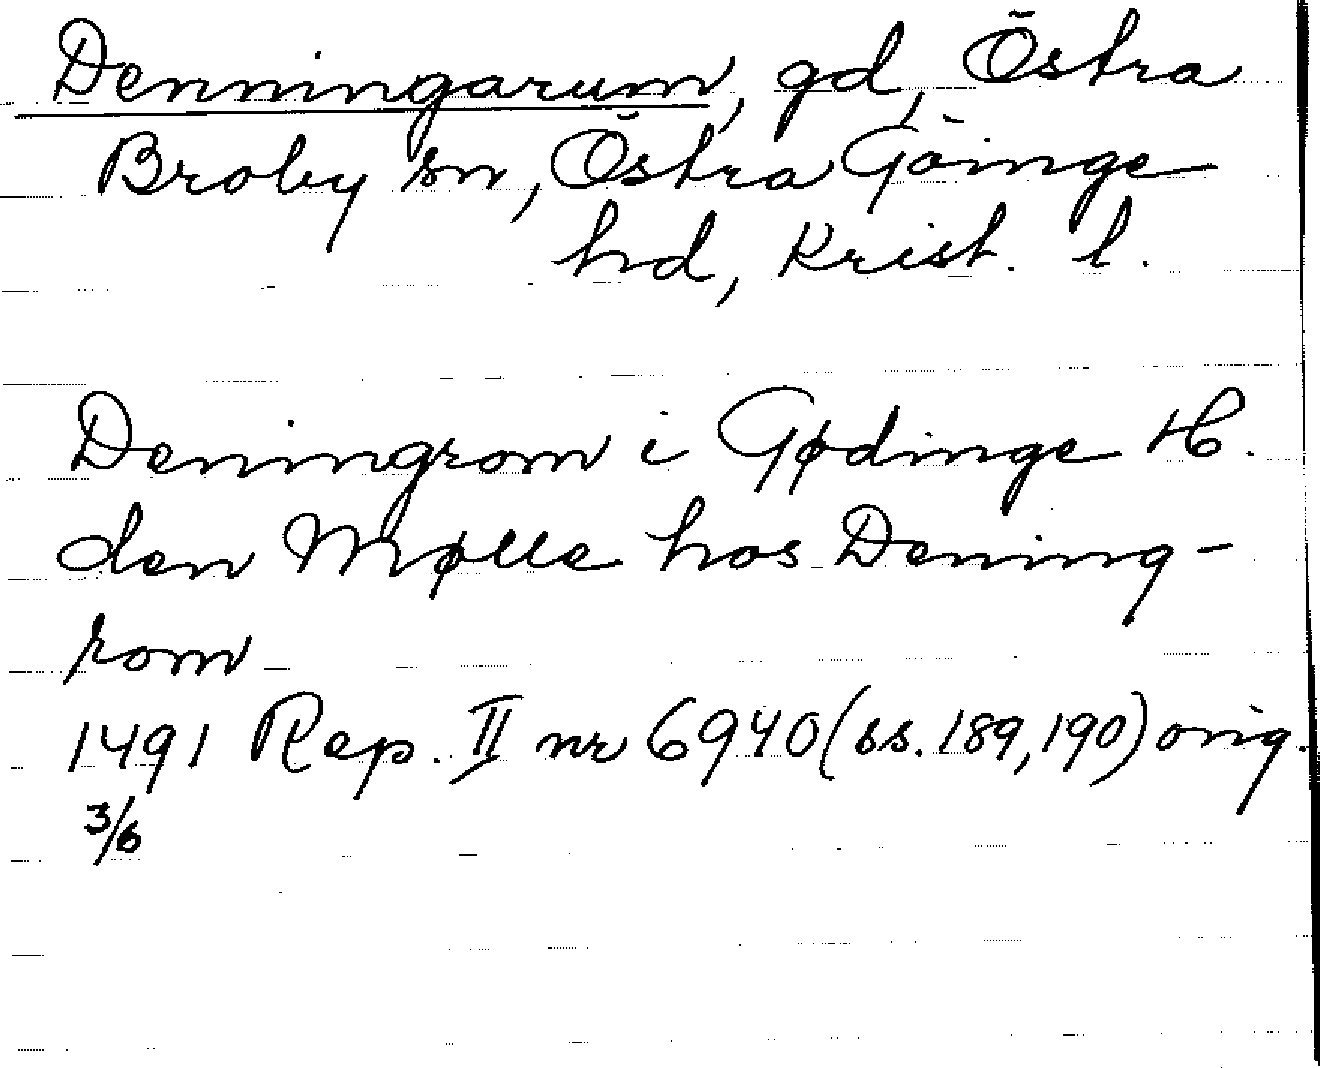 Denningarum, gd, Östra
Broby sn, Östra Göinge
hd, Krist. l.
Deningrom i Gødinge H.
den Mølle hos Dening-
rom
1491 Rep. II nr 6940 (ss. 189, 190) orig.
3/6